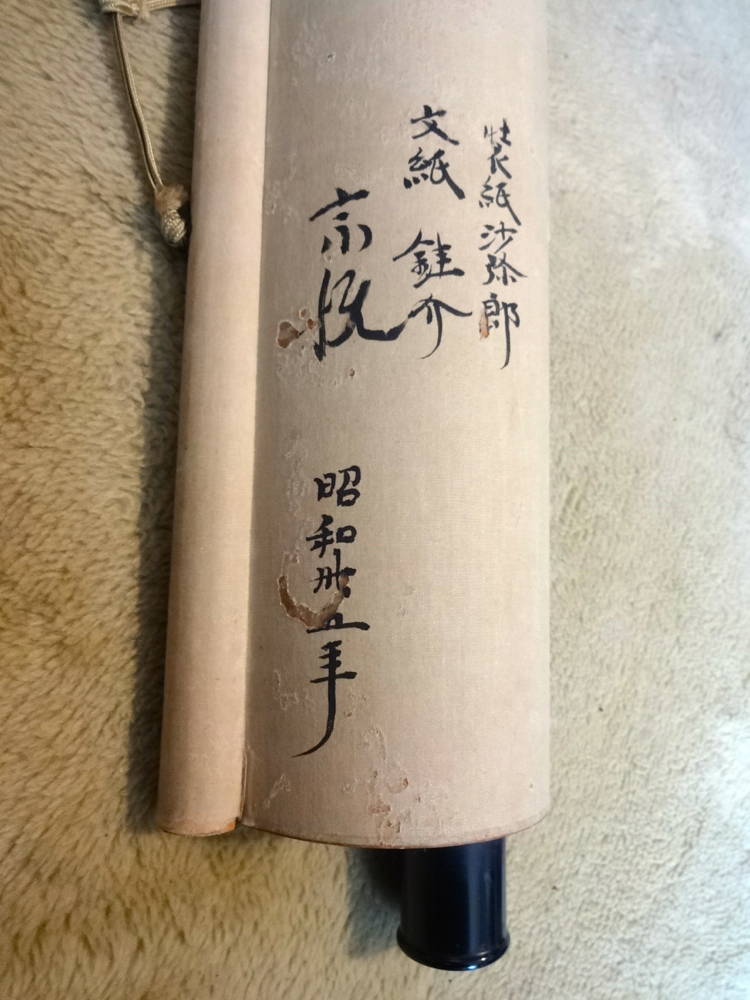 装紙沙弥郎
文紙 銈介
宗悦
昭和卅五年